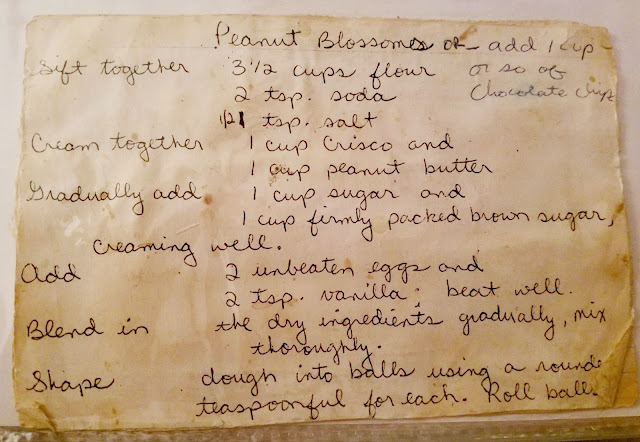 Peanut Blossoms or - add 1 cup
Sift together 3 1/2 cups flour or so of
2 tsp. soda chocolate chips
1/2 tsp. salt
Cream together 1 cup Crisco and
1 cup peanut butter
Gradually add 1 cup sugar and
1 cup firmly packed brown sugar,
creaming well.
Add 2 unbeaten eggs and
2 tsp. vanilla; beat well.
Blend in the dry ingredients gradually, mix
thoroughly.
Shape dough into balls using a round
teaspoonful for each. Roll ball.